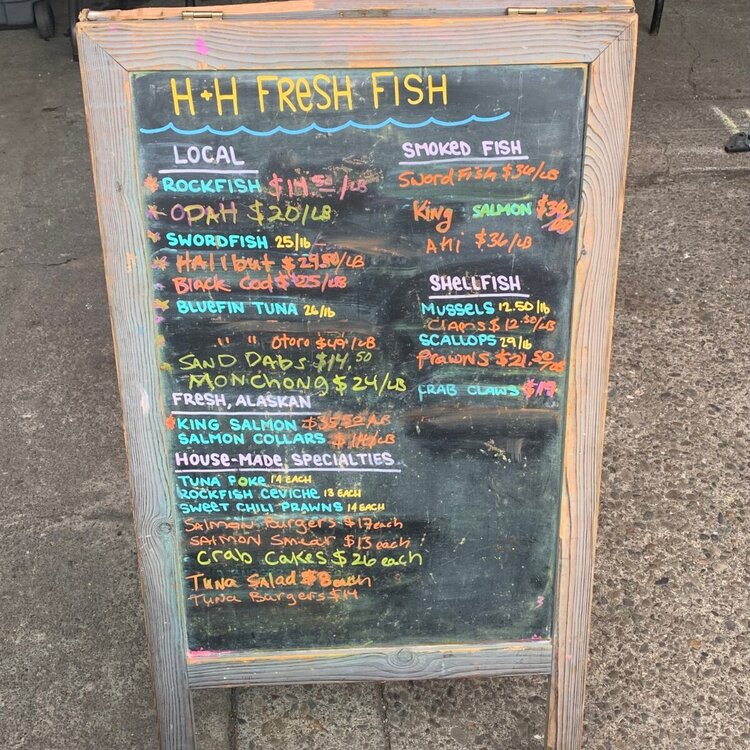 H+H FRESH FISH
LOCAL
ROCKFISH $14.50/LB
OPAH $20/LB
SWORDFISH 25/lb
Halibut $29.50/LB
Black Cod $25/LB
BLUEFIN TUNA 26/lb
" " Otoro $49/LB
SAND DABS $14.50
MONCHONG $24/LB
FRESH, ALASKAN
KING SALMON $35.50/LB
SALMON COLLARS /LB
HOUSE-MADE SPECIALTIES
TUNA POKE 14 EACH
ROCKFISH CEVICHE 13 EACH
SWEET CHILI PRAWNS 14 EACH
Salmon Burgers $17 each
SALMON Smear $13 each
Crab Cakes $26 each
Tuna Salad $8 each
Tuna Burgers $14
SMOKED FISH
SwordFish $36/LB
King SALMON $36/LB
Ahi $36/LB
SHELLFISH
MUSSELS 12.50/lb
CLAMS $12.50/LB
SCALLOPS 29/lb
Prawns $21.50/LB
CRAB CLAWS $19